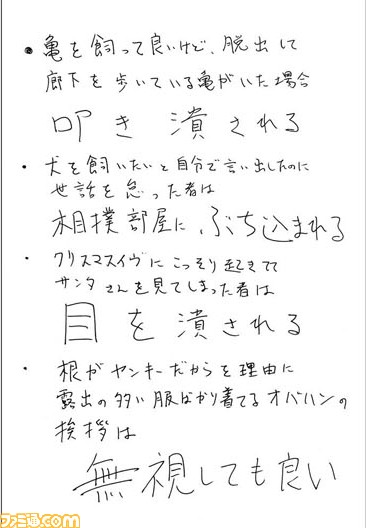 ・亀を飼って良いけど、脱出して
廊下を歩いている亀がいた場合
叩き潰される
・犬を飼いたいと自分で言い出したのに
世話を怠った者は
相撲部屋に、ぶち込まれる
・クリスマスイヴにこっそり起きてて
サンタさんを見てしまった者は
目を潰される
・根がヤンキーだからを理由に
露出の多い服ばかり着てるオバハンの
挨拶は
無視しても良い
ファミ通.com